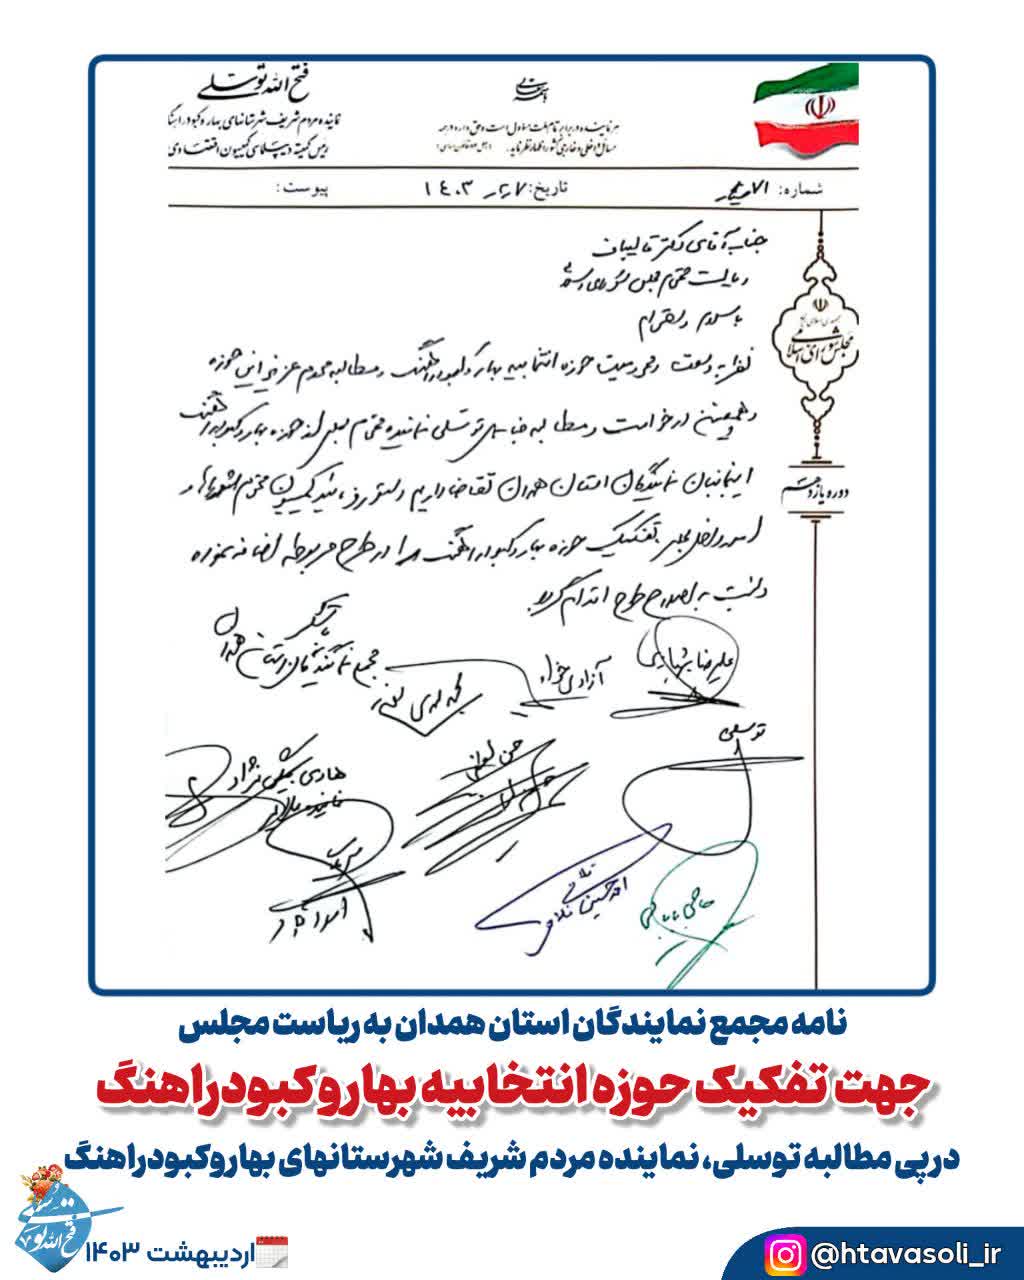 فتح الله توسلی
نماینده مردم شریف شهرستانهای بهار و کبودراهنگ
رییس کمیته دیپلماسی کمیسیون اقتصادی
هر نماینده در برابر تمام ملت مسئول است و حق دارد در همه
مسائل داخلی و خارجی کشور اظهار نظر نماید.
شماره:
تاریخ: ۱۴۰۳
پیوست:
مجلس شورای اسلامی
دوره یازدهم
جناب آقای دکتر قالیباف
ریاست محترم مجلس شورای اسلامی
با سلام و احترام
نظر به وسعت و جمعیت حوزه انتخابیه بهار و کبودراهنگ و مطالبه مردم عزیز این حوزه
و همچنین درخواست و مطالبه جناب آقای توسلی نماینده محترم مجلس از حوزه بهار و کبودراهنگ
اینجانبان نمایندگان استان همدان تقاضا داریم دستور فرمائید کمیسیون محترم شوراها و
امور داخلی مجلس تفکیک حوزه بهار و کبودراهنگ را در طرح مربوطه اضافه نموده
و نسبت به اصلاح طرح اقدام گردد.
با تشکر
مجمع نمایندگان استان همدان
علیرضا شهبازی
آزادی خواه
توسلی
حسن لطفی
هادی بیگی نژاد
نماینده ملایر
احمدحسین فلاحی
حاجی بابایی
نامه مجمع نمایندگان استان همدان به ریاست مجلس
جهت تفکیک حوزه انتخابیه بهار و کبودراهنگ
در پی مطالبه توسلی، نماینده مردم شریف شهرستانهای بهار و کبودراهنگ
فتح الله توسلی
اردیبهشت ۱۴۰۳
@htavasoli_ir